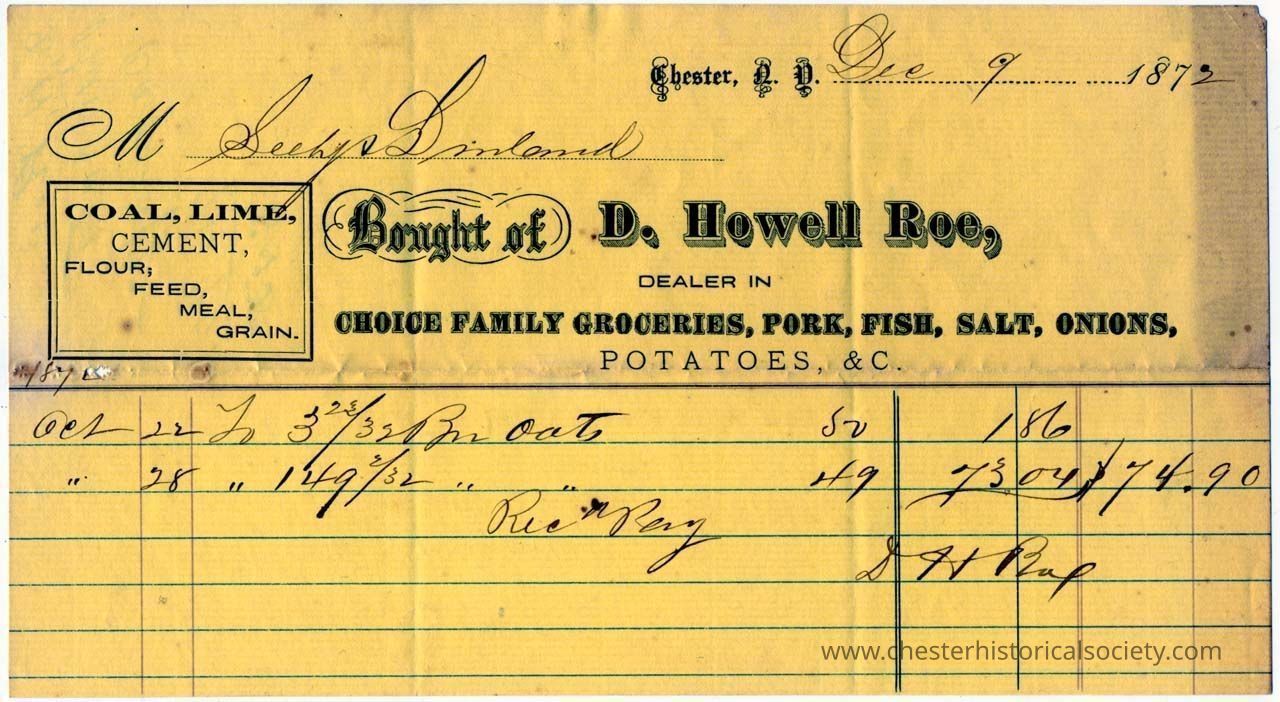 Chester, N. Y. Dec 9 1872
M
COAL, LIME,
CEMENT,
FLOUR,
FEED,
MEAL,
GRAIN.
Bought of D. Howell Roe,
DEALER IN
CHOICE FAMILY GROCERIES, PORK, FISH, SALT, ONIONS,
POTATOES, &C.
187
Oct 22 To 3 /32 Bu Oats 50 1 86
" 28 " 149 2/32 " " 49 73.04 $74.90
Rec Pay
D H Roe
www.chesterhistoricalsociety.com